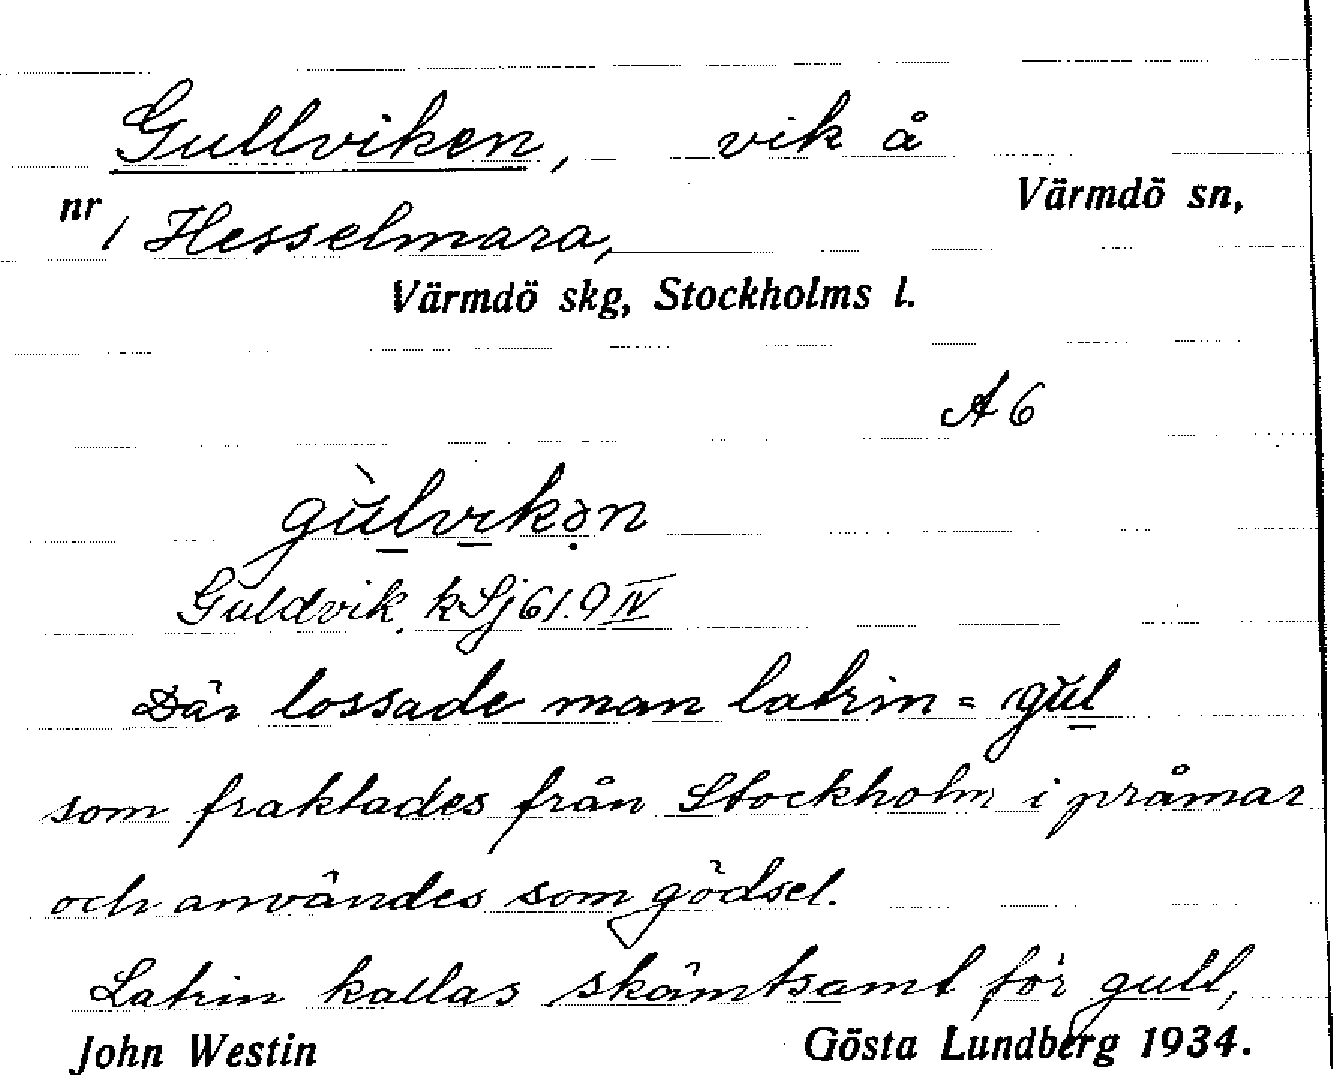 Gullviken, vik å
Värmdö sn,
nr 1 Hesselmara,
Värmdö skg, Stockholms l.
A6
gùlvikən
Guldvik kSj 61.9 IV
Där lossade man latrin = gùl
som fraktades från Stockholm i pråmar
och användes som gödsel.
Latrin kallas skämtsamt för gull,
John Westin Gösta Lundberg 1934.